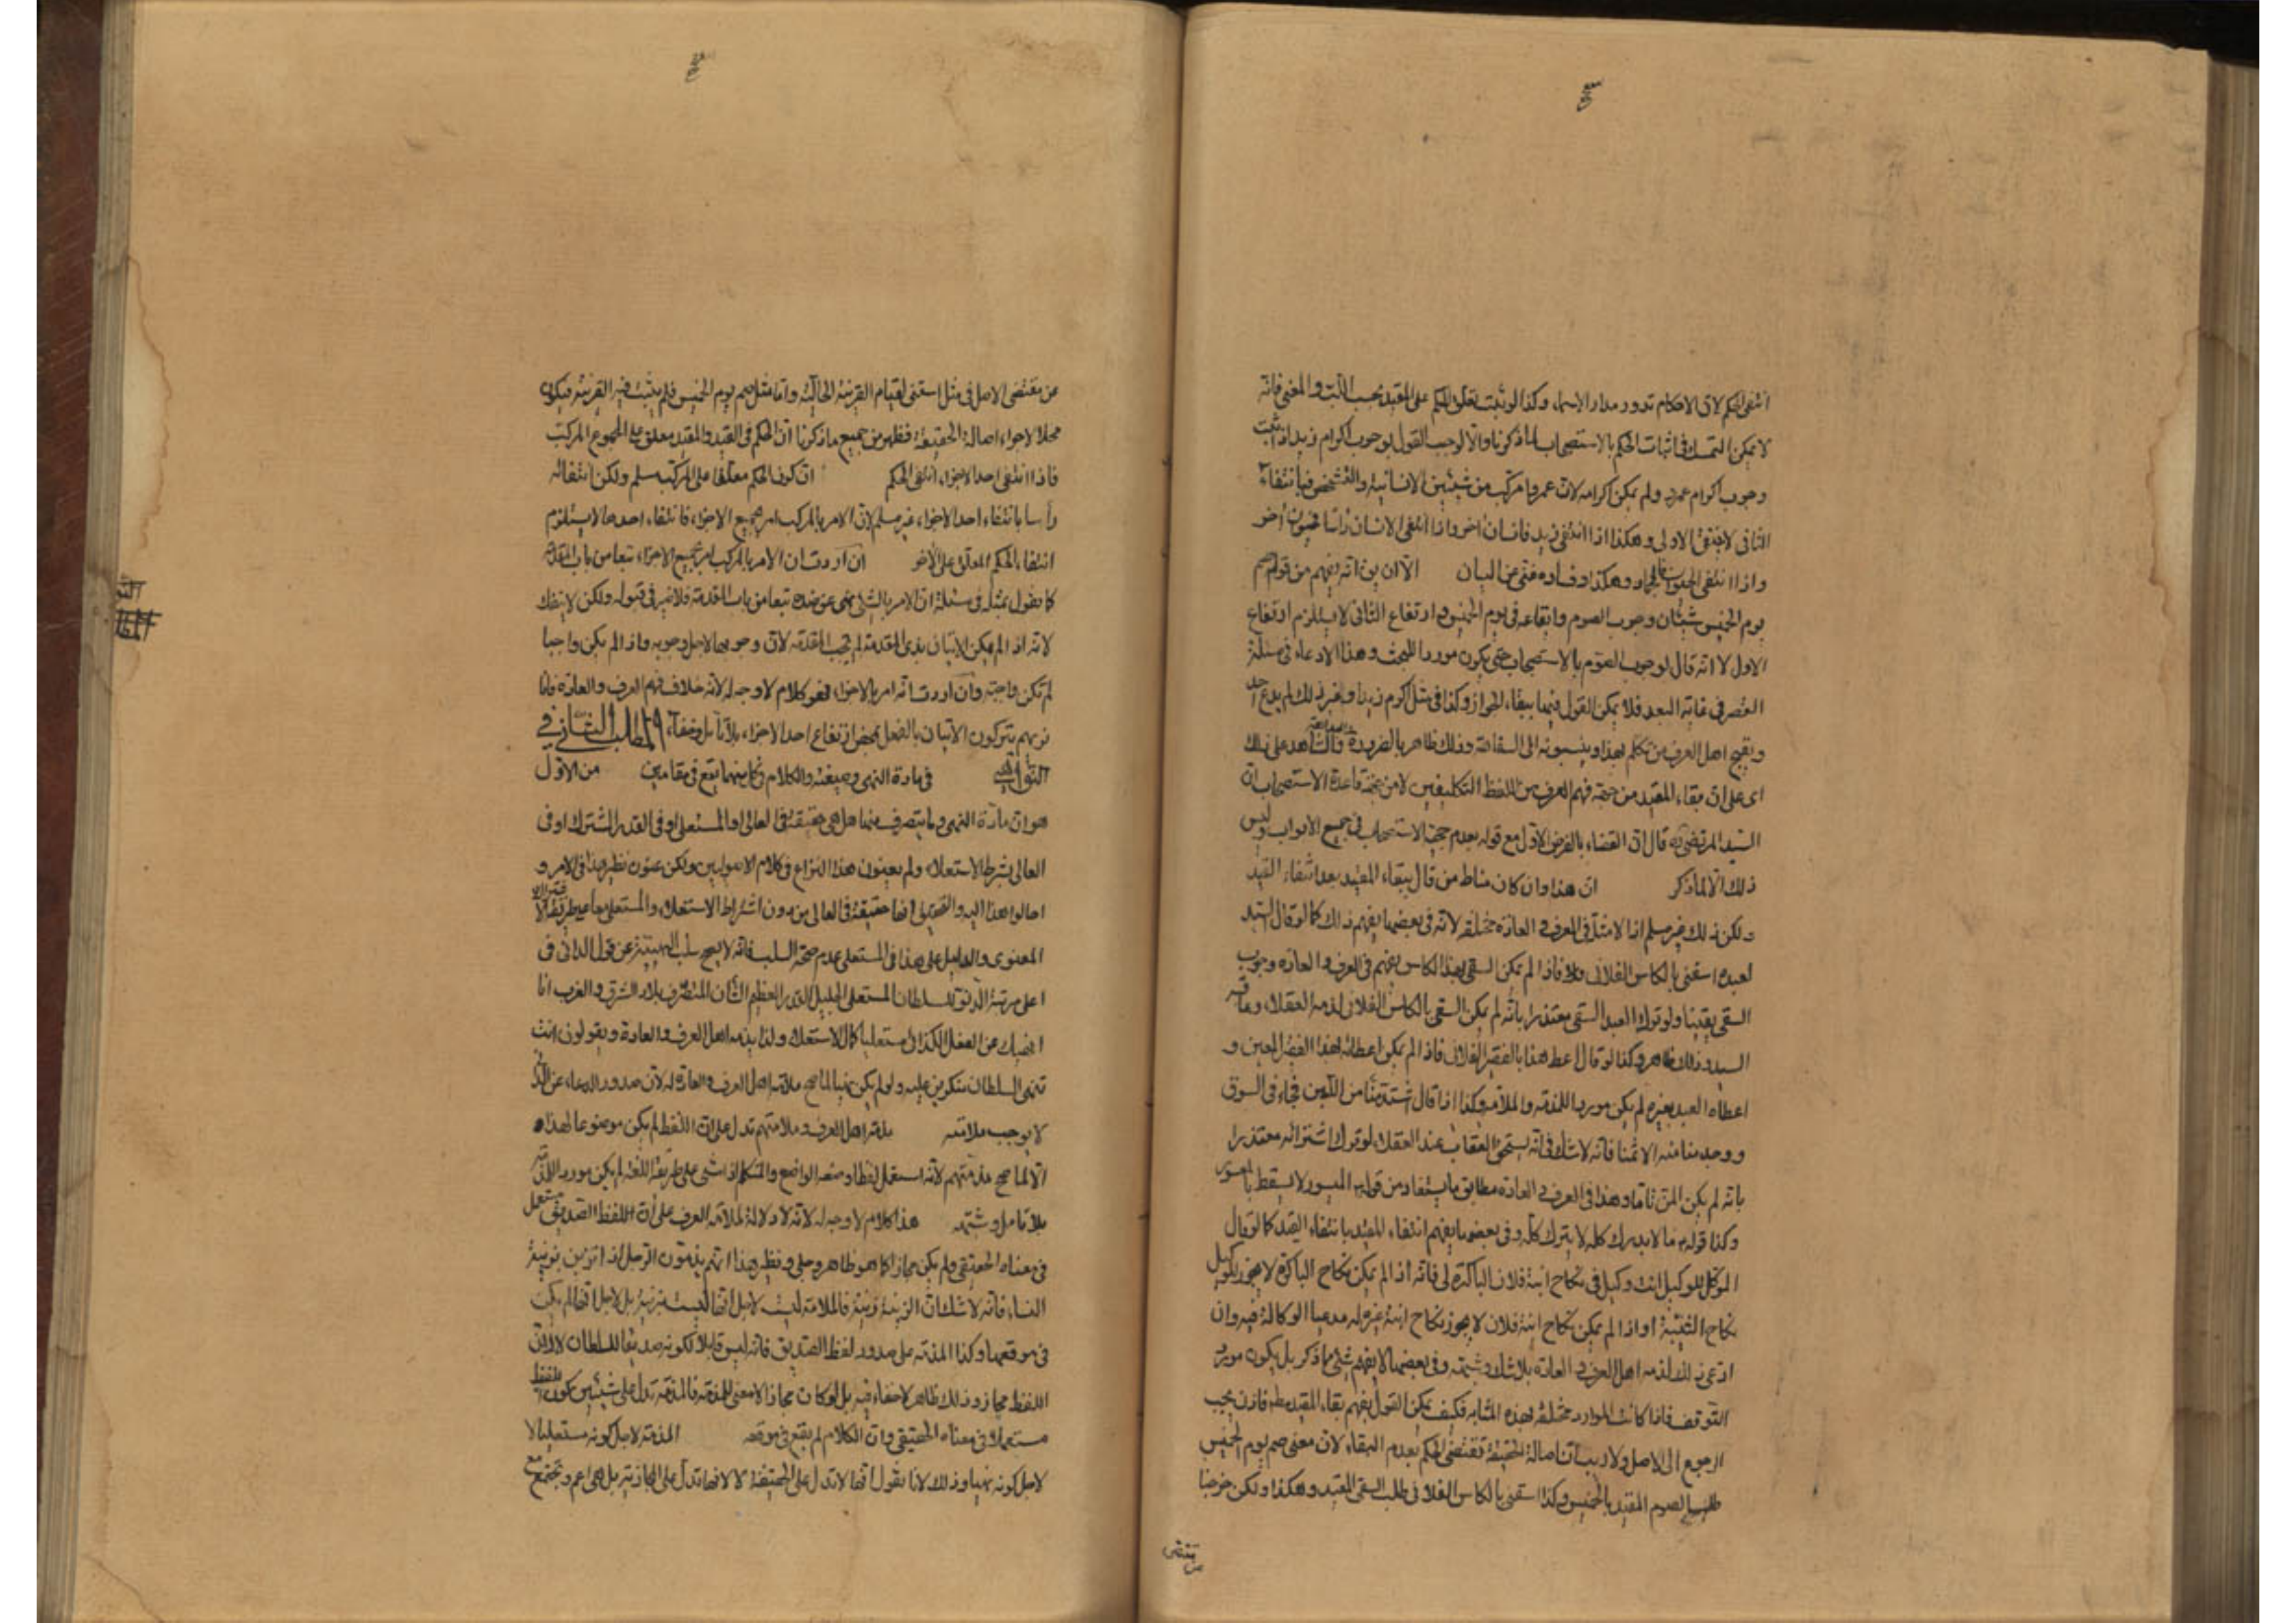 انتفى الحكم لان الاحكام تدور مدار الاسماء وكذا لو ثبت تعلق الحكم على المقيد بحسب اللب والمعنى فانه
لا يمكن التمسك في اثبات الحكم بالاستصحاب لما ذكرنا والا لوجب القول بوجوب اكرام زيد اذا ثبت
وجوب اكرام عمرو ولم يمكن اكرامه لان عمروا مركب من شيئين الانسانية والتشخص فبانتفاء
الثاني لا ينتفى الاولى وهكذا اذا انتفى زيد فانسان اخر واذا انتفى الانسان راسا فحيوان اخر
واذا انتفى الحيوان فالجماد وهكذا وفساده غني عن البيان الا ان يق انه يفهم من قوله صم
يوم الخميس شيئان وجوب الصوم وايقاعه في يوم الخميس وارتفاع الثاني لا يستلزم ارتفاع
الاول لا انه قال لوجوب الصوم بالاستصحاب حتى يكون موردا للبحث وهذا الادعاء في مسئلة
في غاية البعد فلا يمكن القول فيها ببقاء الجواز وكذا في مثل اكرم زيدا وغير ذلك لم يدع احد
ويقبح اهل العرف من تكلم بهذا وينسبونه الى السفاهة وذلك ظاهر بالضرورة والشاهد على ذلك
اى على ان بقاء المقيد من جهة فهم العرف من اللفظ التكليفين لا من جهة قاعدة الاستصحاب ان
السيد المرتضى ره قال ان القضاء بالفرض الاول مع قوله بعدم حجية الاستصحاب في جميع الابواب وليس
ذلك الا لما ذكر ان هذا وان كان مناط من قال ببقاء المقيد بعد انتفاء القيد
ولكن ذلك غير مسلم اذ الامثلة في العرف والعادة مختلفة لانه في بعضها يفهم ذلك كما لو قال السيد
لعبده اسقني بالكاس الفلاني فاذا لم يمكن السقي بهذا الكاس يفهم في العرف والعادة وجوب
السقي يقينا ولو ترك العبد السقي معتذرا بانه لم يكن السقي بالكاس الفلاني لذمه العقلاء وعاقبه
السيد وذلك ظاهر وكذا لو قال اعط هذا بالفقير الفلاني فاذا لم يمكن اعطائه لهذا الفقير المعين و
اعطاه العبد بغيره لم يكن موردا للمذمة والملامة وكذا اذا قال اشتر منا من اللبن فجاء في السوق
ووجد منا منه الا ثمنا فانه لا شك في انه يستحق العقاب عند العقلاء لو ترك اشترائه معتذرا
بانه لم يكن المن تاما وهذا في العرف والعادة مطابق ما يستفاد من قوله الميسور لا يسقط بالمعسور
وكذا قوله ما لا يدرك كله لا يترك كله وفي بعضها يفهم انتفاء المقيد بانتفاء القيد كما لو قال
الموكل للوكيل انت وكيل في نكاح ابنة فلان الباكرة لي فانه اذا لم يمكن نكاح الباكرة لا يجوز للوكيل
نكاح الثيبة او اذا لم يمكن نكاح ابنة فلان لا يجوز نكاح ابنة غيره له مدعيا الوكالة فيه وان
ادعى ذلك لذمه اهل العرف والعادة بلا شك وشبهة وفي بعضها لا يفهم شئ مما ذكر بل يكون مورد
التوقف فاذا كانت الموارد مختلفة بهذه المثابة فكيف يمكن القول بفهم بقاء المقيد مط فاذن يجب
الرجوع الى الاصل ولا ريب ان اصالة الحقيقة تقتضى الحكم بعدم البقاء لان معنى صم يوم الخميس
طلب الصوم المقيد بالخميس وكذا اسقني بالكاس الفلاني طلب السقي المقيد وهكذا ولكن خرجنا
من مقتضى الاصل في مثل اسقني لقيام القرينة الحالية واما مثل صم يوم الخميس فلم يثبت فيه القرينة فيكون
محلا لاجراء اصالة الحقيقة فظهر من جميع ما ذكرنا ان الحكم في القيد والمقيد معلق على المجموع المركب
فاذا انتفى احد الاجزاء انتفى الحكم ان كون الحكم معلقا على المركب مسلم ولكن انتفائه
راسا بانتفاء احد الاجزاء غير مسلم لان الامر بالمركب امر بجميع الاجزاء فانتفاء احدها لا يستلزم
انتفاء الحكم المعلق على الاخر ان اردت ان الامر بالمركب امر بجميع الاجزاء تبعا من باب المقدمة
كما نقول بمثله في مسئلة ان الامر بالشئ نهى عن ضده تبعا من باب المقدمة فلا ضير في قبوله ولكن لا ينفعك
لانه اذا لم يمكن الاتيان بذى المقدمة لم تجب المقدمة لان وجوبها لاجل وجوبه واذا لم يكن واجبا
لم تكن واجبة وان اردت انه امر بالاجزاء فهو كلام لا وجه له لانه خلاف فهم العرف والعادة فانا
نريهم يتركون الاتيان بالفعل بمحض ارتفاع احد الاجزاء بلا تامل وخفاء المطلب الثاني في
النواهي في مادة النهى وصيغته والكلام في كل منهما يقع في مقامين من الاول
هو ان مادة النهى وما يتصرف منها هل هى حقيقة في العالى او المستعلى او في القدر المشترك او في
العالى بشرط الاستعلاء ولم يعينون هذا النزاع في كلام الاصوليين ولكن عنون نظير هذا في الامر و
احالوا هذا اليه والتحقيق انها حقيقة في العالى من دون اشتراط الاستعلاء والمستعلى معا بطريق الاشتراك
المعنوى والدليل على هذا في المستعلى عدم صحة السلب فانه لا يصح سلب النهى عن قول الداني في
اعلى مرتبة الدنو للسلطان المستعلى الجليل القدر العظيم الشان المتصرف ببلاد الشرق والغرب انا
انهيك عن الفعل الكذائي مستعليا كمال الاستعلاء ولذا يذمه اهل العرف والعادة ويقولون انت
تنهى السلطان منكرين عليه ولو لم يكن نهيا لما صح ملامة اهل العرف والعادة له لان صدور الدعاء عن الداني
لا يوجب ملامته مذمة اهل العرف وملامتهم تدل على ان اللفظ لم يكن موضوعا لهذا
والا لما صح مذمتهم لانه استعمل لفظا وضعه الواضع والمتكلم اذا مشى على طريقة اللغة لم يكن مورد الذم
بلا تامل وشبهة هذا كلام لا وجه له لانه لا دلالة لملامة العرف على ان اللفظ الصديق مستعمل
في معناه الحقيقي ولم يكن مجازا كما هو ظاهر وجلى ونظير هذا انهم يذمون الرجل اذا تزين بزينة
النساء فانه لا شك ان الزينة زينة فالملامة ليست لاجل انها ليست بزينة بل لاجل انها لم يكن
في موقعها وكذا المذمة على صدور لفظ الصديق فانه ليس قابلا لكونه صديقا للسلطان لا لان
اللفظ مجاز وذلك ظاهر لا خفاء فيه بل لو كان مجازا لا معنى للمذمة فالمذمة تدل على شيئين كون اللفظ
مستعملا في معناه الحقيقي وان الكلام لم يقع في موقعه المذمة لاجل كونه مستعليا لا
لاجل كونه نهيا وذلك لانا نقول انها لا تدل على الحقيقة لا انها تدل على المجازية بل هى اعم وتجتمع مع